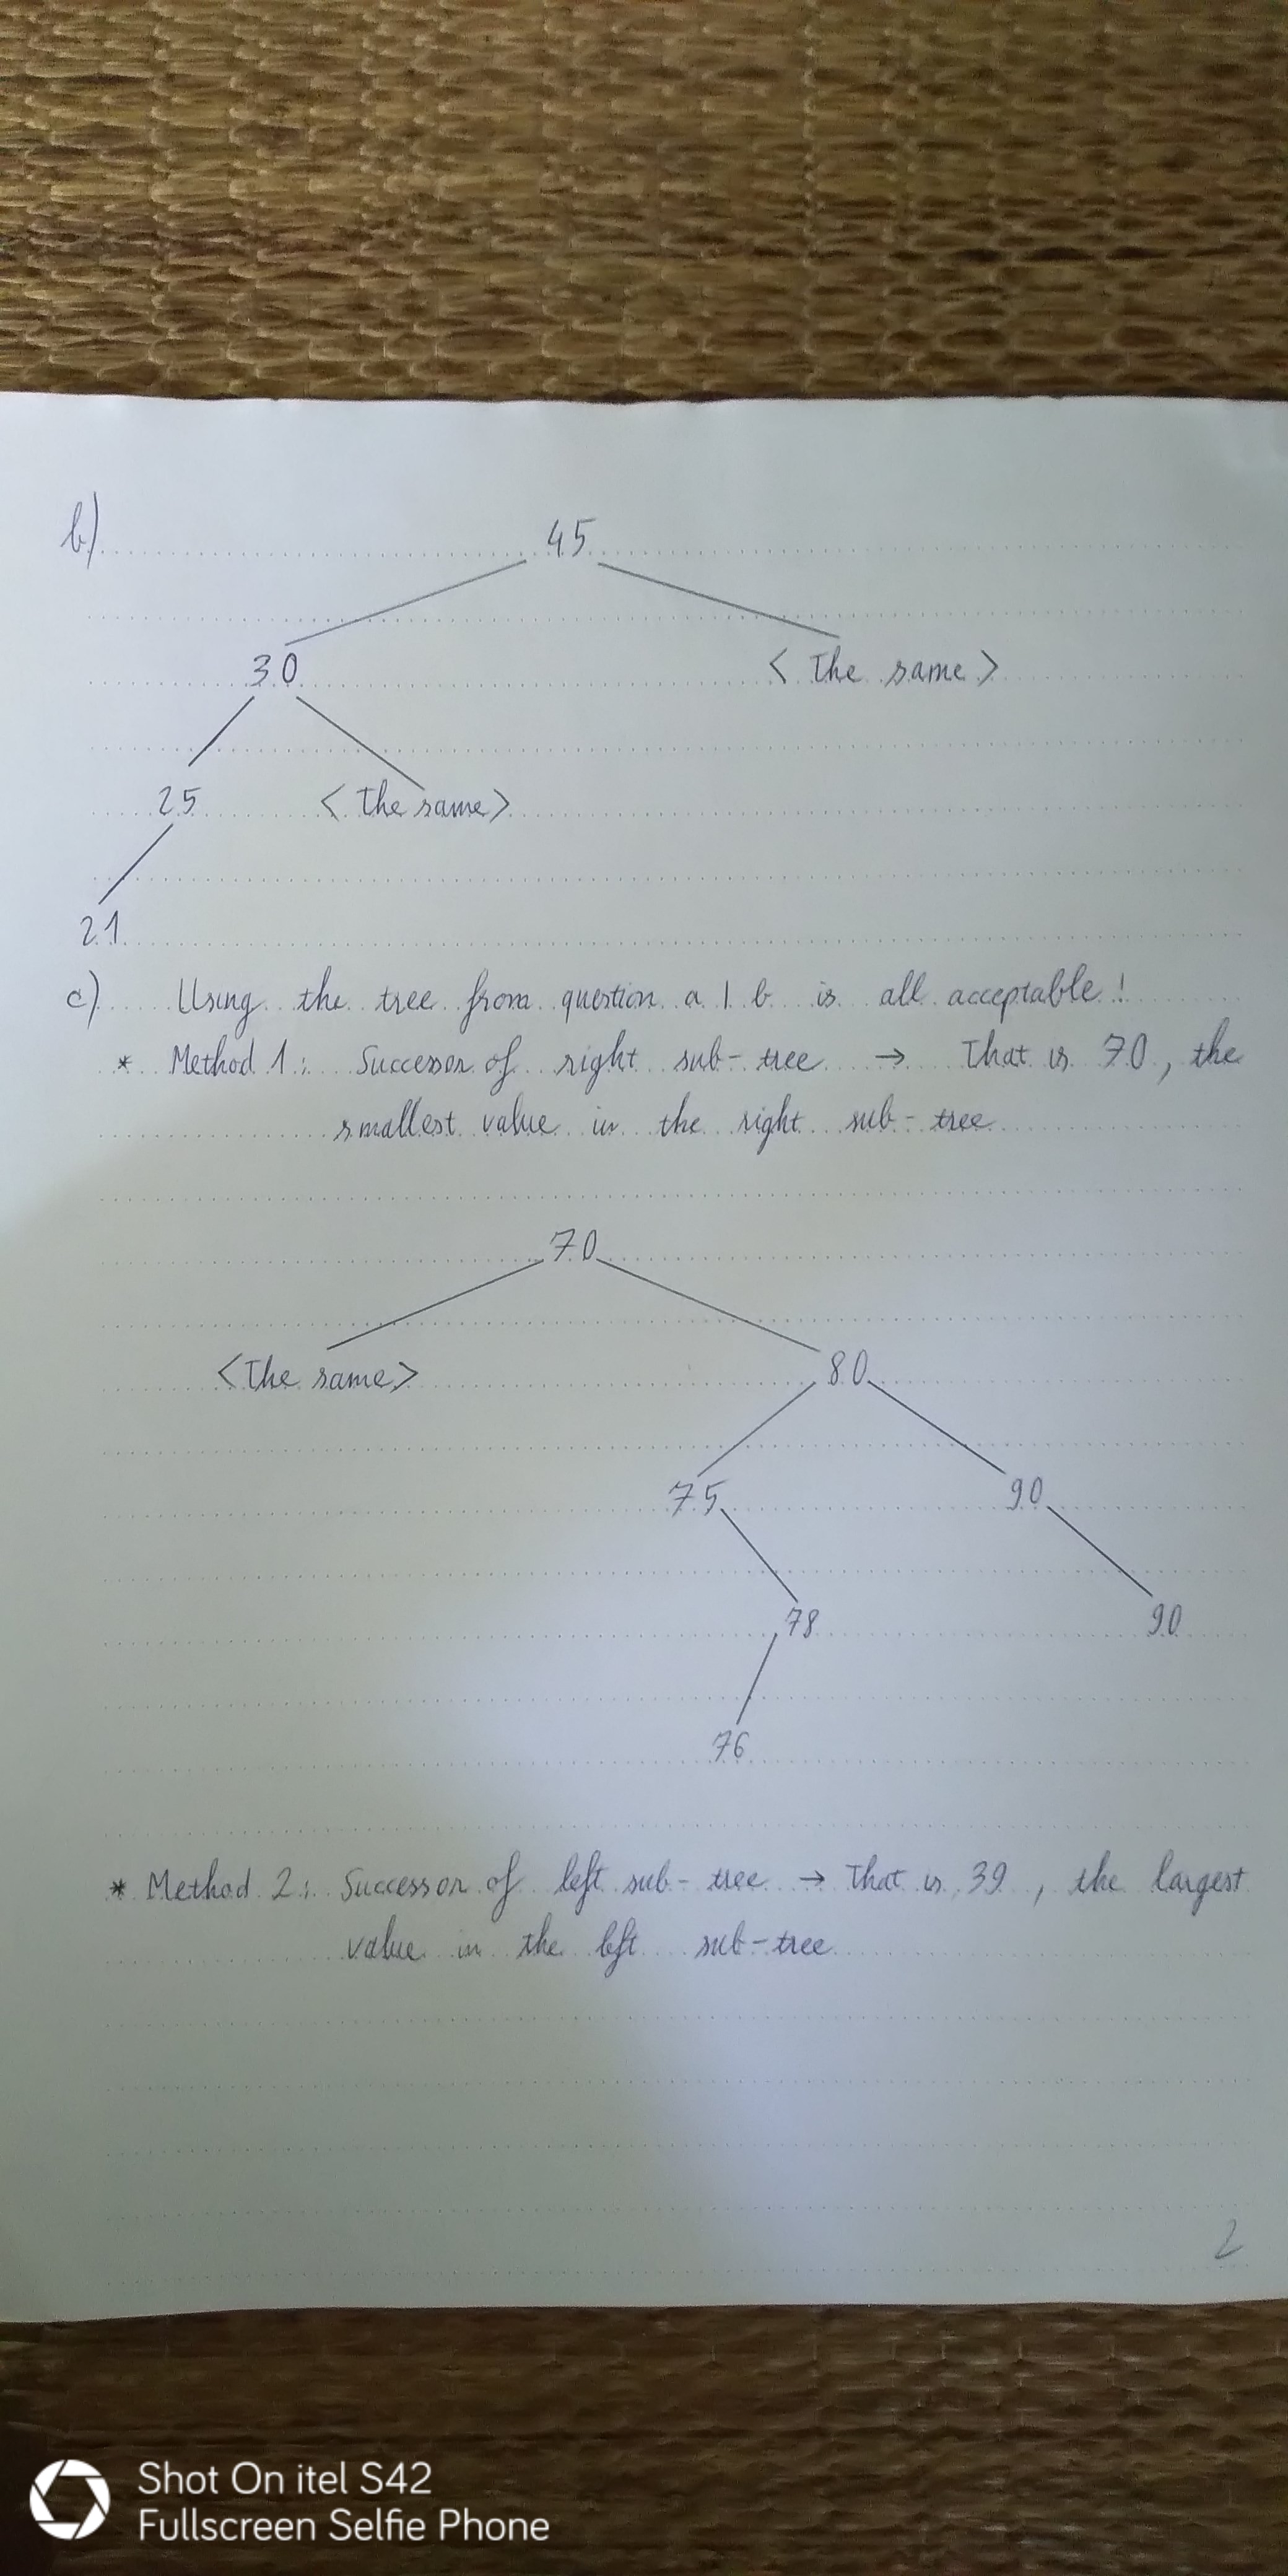 b)
45
30 < The same >
25 < The same >
21
c) Using the tree from question a | b is all acceptable !
* Method 1 : Successor of right sub-tree → That is 70, the
smallest value in the right sub-tree
70
<The same> 80
75 90
78 90
76
* Method 2 : Successor of left sub-tree → That is 39, the largest
value in the left sub-tree
2
Shot On itel S42
Fullscreen Selfie Phone